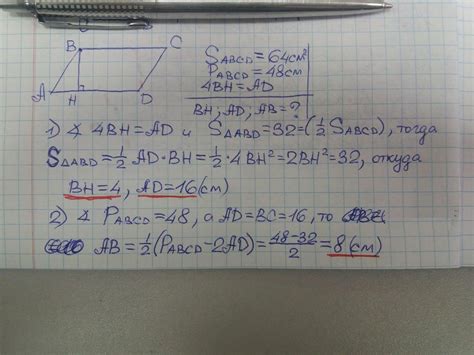 B C
A H D
S ABCD = 64см²
P ABCD = 48см
4BH = AD
BH; AD; AB = ?
1) ∡ 4BH = AD и S ΔABD = 32 = (½ S ABCD), тогда
S ΔABD = ½ AD · BH = ½ · 4BH² = 2BH² = 32, откуда
BH = 4, AD = 16 (см)
2) ∡ P ABCD = 48, а AD = BC = 16, то
AB = ½ (P ABCD - 2AD) = 48-32/2 = 8 (см)